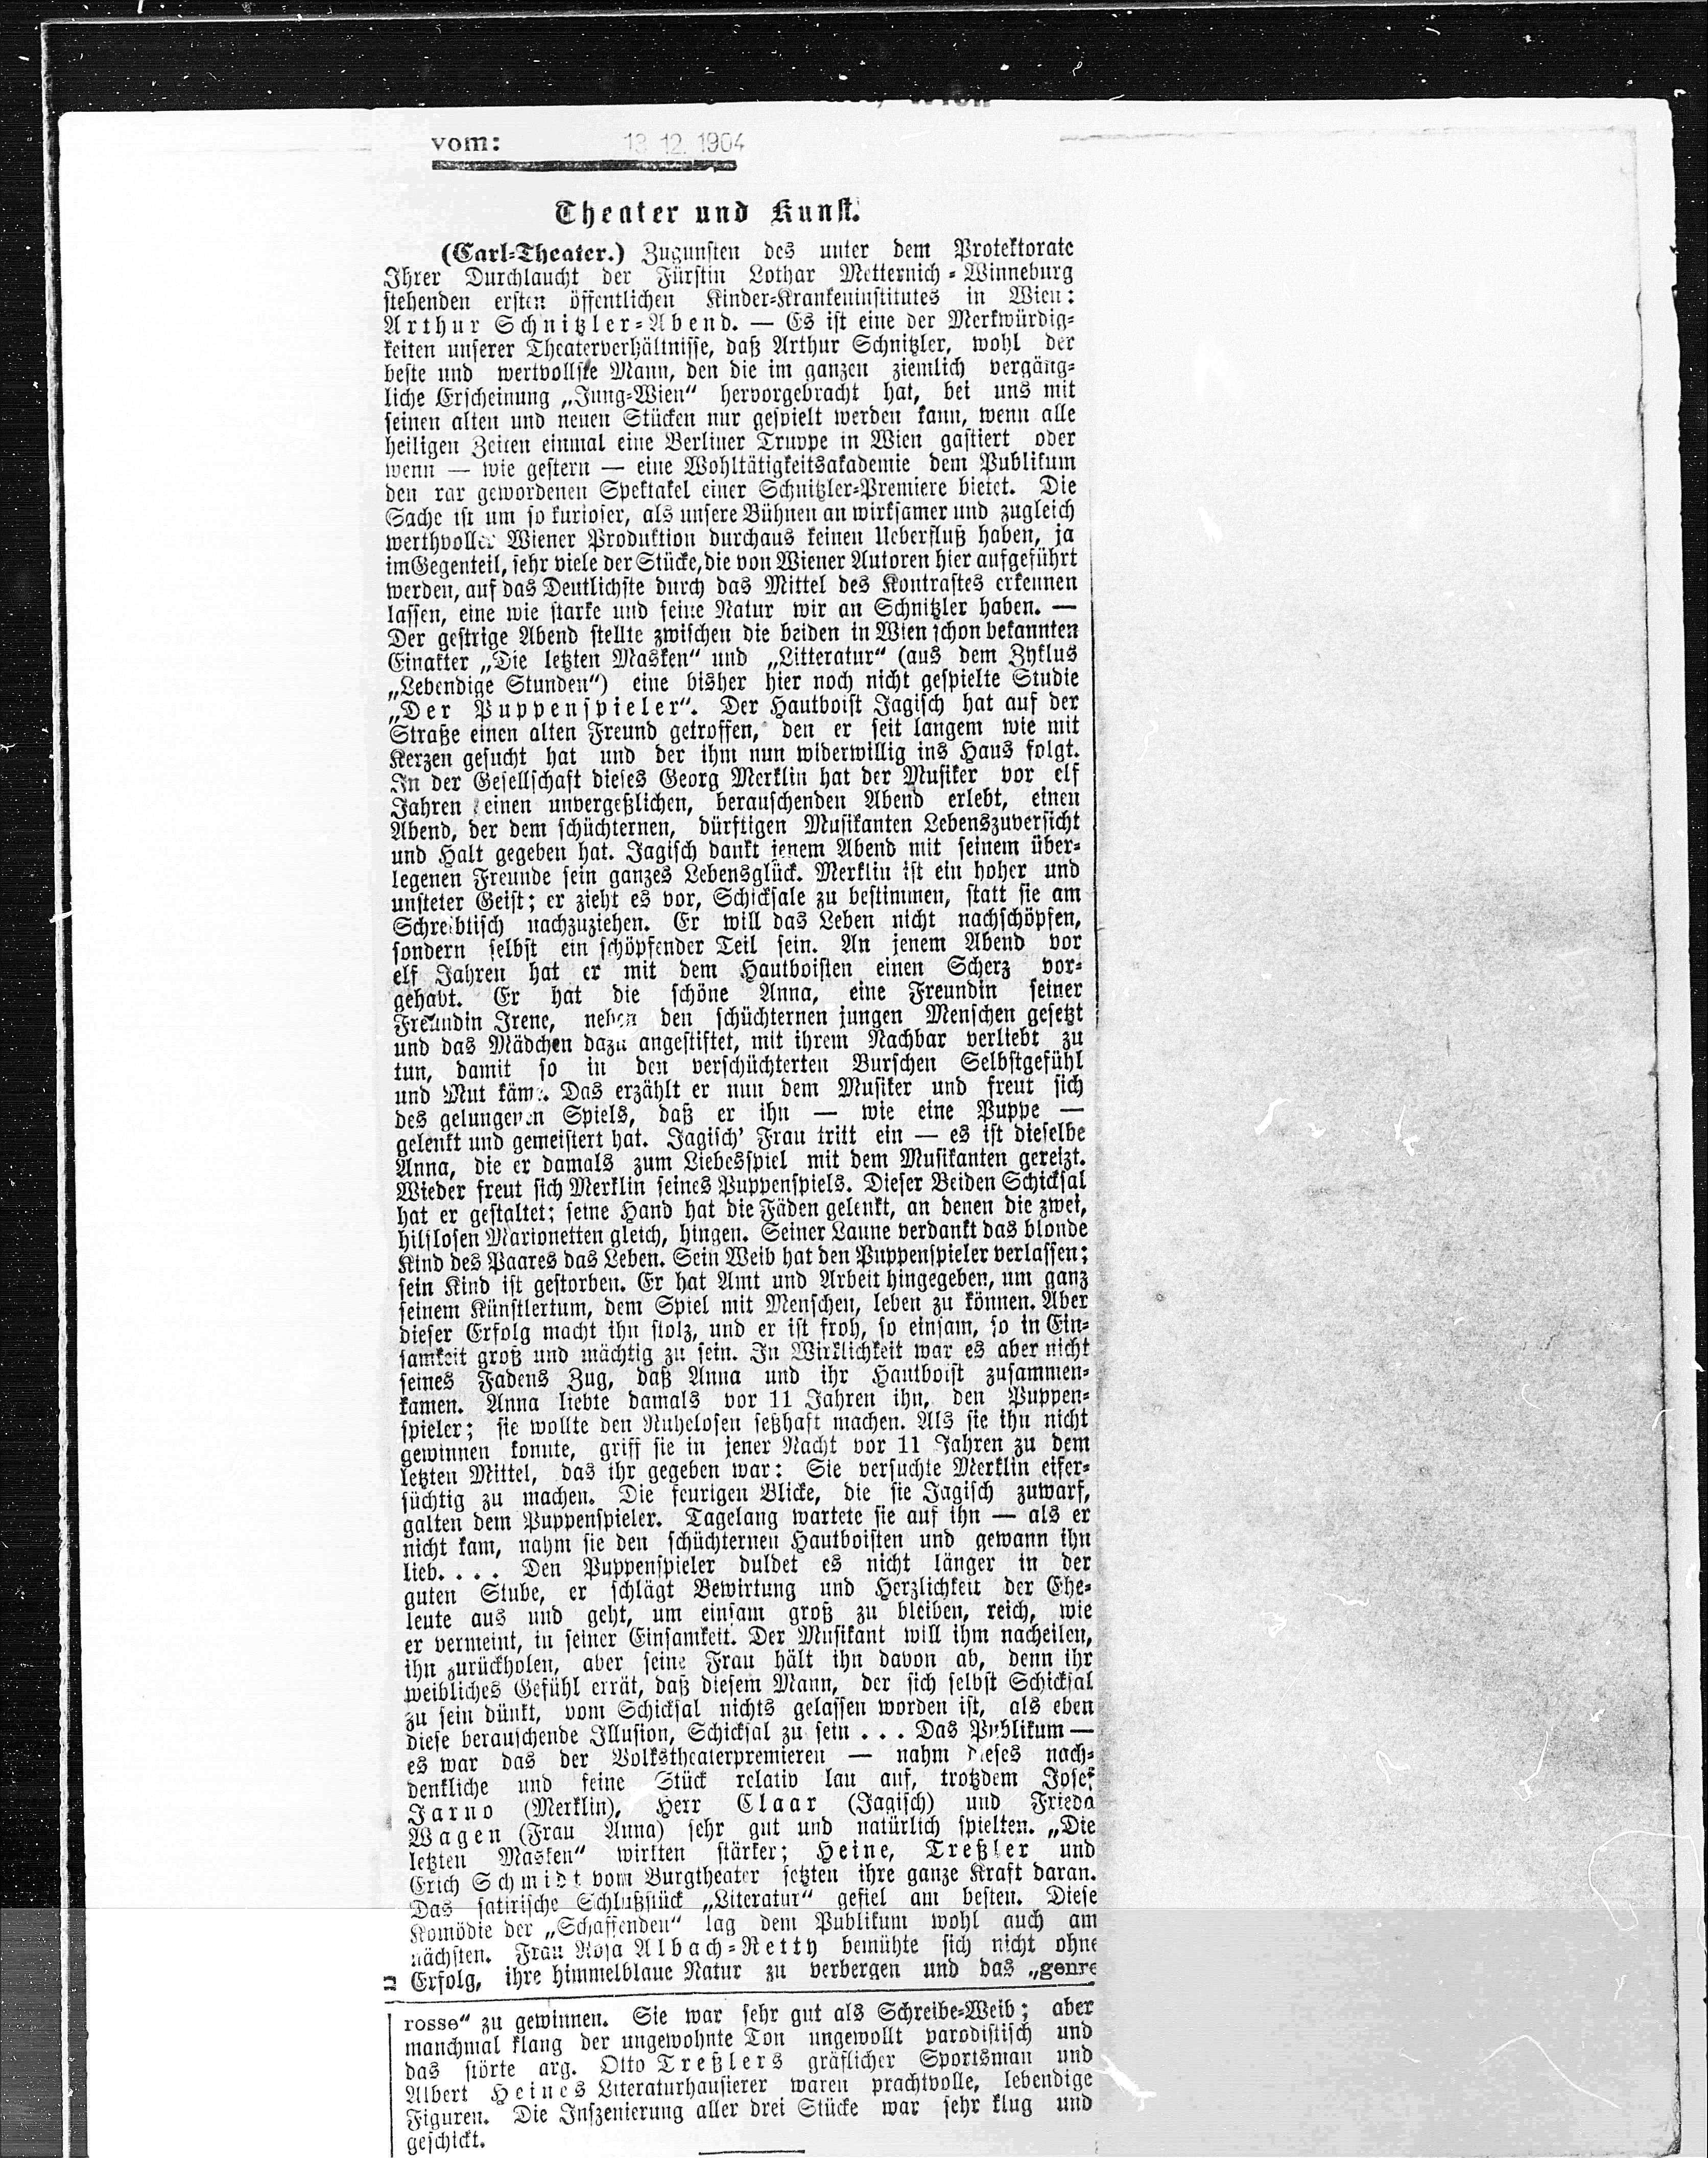 Wien
vom: 13 12. 1904
Theater und Kunst.
(Carl-Theater.) Zugunsten des unter dem Protektorate
Ihrer Durchlaucht der Fürstin Lothar Metternich-Winneburg
stehenden ersten öffentlichen Kinder-Krankeninstitutes in Wien:
Arthur Schnitzler-Abend. — Es ist eine der Merkwürdig-
keiten unserer Theaterverhältnisse, daß Arthur Schnitzler, wohl der
beste und wertvollste Mann, den die im ganzen ziemlich vergäng-
liche Erscheinung „Jung-Wien“ hervorgebracht hat, bei uns mit
seinen alten und neuen Stücken nur gespielt werden kann, wenn alle
heiligen Zeiten einmal eine Berliner Truppe in Wien gastiert oder
wenn — wie gestern — eine Wohltätigkeitsakademie dem Publikum
den rar gewordenen Spektakel einer Schnitzler-Premiere bietet. Die
Sache ist um so kurioser, als unsere Bühnen an wirksamer und zugleich
werthvoller Wiener Produktion durchaus keinen Ueberfluß haben, ja
im Gegenteil, sehr viele der Stücke, die von Wiener Autoren hier aufgeführt
werden, auf das Deutlichste durch das Mittel des Kontrastes erkennen
lassen, eine wie starke und feine Natur wir an Schnitzler haben. —
Der gestrige Abend stellte zwischen die beiden in Wien schon bekannten
Einakter „Die letzten Masken“ und „Litteratur“ (aus dem Zyklus
„Lebendige Stunden“) eine bisher hier noch nicht gespielte Studie
„Der Puppenspieler“. Der Hautboist Jagisch hat auf der
Straße einen alten Freund getroffen, den er seit langem wie mit
Kerzen gesucht hat und der ihm nun widerwillig ins Haus folgt.
In der Gesellschaft dieses Georg Merklin hat der Musiker vor elf
Jahren einen unvergeßlichen, berauschenden Abend erlebt, einen
Abend, der dem schüchternen, dürftigen Musikanten Lebenszuversicht
und Halt gegeben hat. Jagisch dankt jenem Abend mit seinem über-
legenen Freunde sein ganzes Lebensglück. Merklin ist ein hoher und
unsteter Geist; er zieht es vor, Schicksale zu bestimmen, statt sie am
Schreibtisch nachzuziehen. Er will das Leben nicht nachschöpfen,
sondern selbst ein schöpfender Teil sein. An jenem Abend vor
elf Jahren hat er mit dem Hautboisten einen Scherz vor-
gehabt. Er hat die schöne Anna, eine Freundin seiner
Freundin Irene, neben den schüchternen jungen Menschen gesetzt
und das Mädchen dazu angestiftet, mit ihrem Nachbar verliebt zu
tun, damit so in den verschüchterten Burschen Selbstgefühl
und Mut käme. Das erzählt er nun dem Musiker und freut sich
des gelungenen Spiels, daß er ihn — wie eine Puppe —
gelenkt und gemeistert hat. Jagisch' Frau tritt ein — es ist dieselbe
Anna, die er damals zum Liebesspiel mit dem Musikanten gereizt.
Wieder freut sich Merklin seines Puppenspiels. Dieser Beiden Schicksal
hat er gestaltet; seine Hand hat die Fäden gelenkt, an denen die zwei,
hilflosen Marionetten gleich, hingen. Seiner Laune verdankt das blonde
Kind des Paares das Leben. Sein Weib hat den Puppenspieler verlassen;
sein Kind ist gestorben. Er hat Amt und Arbeit hingegeben, um ganz
seinem Künstlertum, dem Spiel mit Menschen, leben zu können. Aber
dieser Erfolg macht ihn stolz, und er ist froh, so einsam, so in Ein-
samkeit groß und mächtig zu sein. In Wirklichkeit war es aber nicht
seines Fadens Zug, daß Anna und ihr Hautboist zusammen-
kamen. Anna liebte damals vor 11 Jahren ihn, den Puppen-
spieler; sie wollte den Ruhelosen seßhaft machen. Als sie ihn nicht
gewinnen konnte, griff sie in jener Nacht vor 11 Jahren zu dem
letzten Mittel, das ihr gegeben war: Sie versuchte Merklin eifer-
süchtig zu machen. Die feurigen Blicke, die sie Jagisch zuwarf,
galten dem Puppenspieler. Tagelang wartete sie auf ihn — als er
nicht kam, nahm sie den schüchternen Hautboisten und gewann ihn
lieb. . . . Den Puppenspieler duldet es nicht länger in der
guten Stube, er schlägt Bewirtung und Herzlichkeit der Ehe-
leute aus und geht, um einsam groß zu bleiben, reich, wie
er vermeint, in seiner Einsamkeit. Der Musikant will ihm nacheilen,
ihn zurückholen, aber seine Frau hält ihn davon ab, denn ihr
weibliches Gefühl errät, daß diesem Mann, der sich selbst Schicksal
zu sein dünkt, vom Schicksal nichts gelassen worden ist, als eben
diese berauschende Illusion, Schicksal zu sein . . . Das Publikum —
es war das der Volkstheaterpremieren — nahm dieses nach-
denkliche und feine Stück relativ lau auf, trotzdem Josef
Jarno (Merklin), Herr Claar (Jagisch) und Frieda
Wagen (Frau Anna) sehr gut und natürlich spielten. „Die
letzten Masken“ wirkten stärker; Heine, Treßler und
Erich Schmidt vom Burgtheater setzten ihre ganze Kraft daran.
Das satirische Schlußstück „Literatur“ gefiel am besten. Diese
Komödie der „Schaffenden“ lag dem Publikum wohl auch am
nächsten. Frau Rosa Albach-Retty bemühte sich nicht ohne
Erfolg, ihre himmelblaue Natur zu verbergen und das „genre
rosse“ zu gewinnen. Sie war sehr gut als Schreibe-Weib; aber
manchmal klang der ungewohnte Ton ungewollt parodistisch und
das störte arg. Otto Treßlers gräflicher Sportsman und
Albert Heines Literaturhausierer waren prachtvolle, lebendige
Figuren. Die Inszenierung aller drei Stücke war sehr klug und
geschickt.